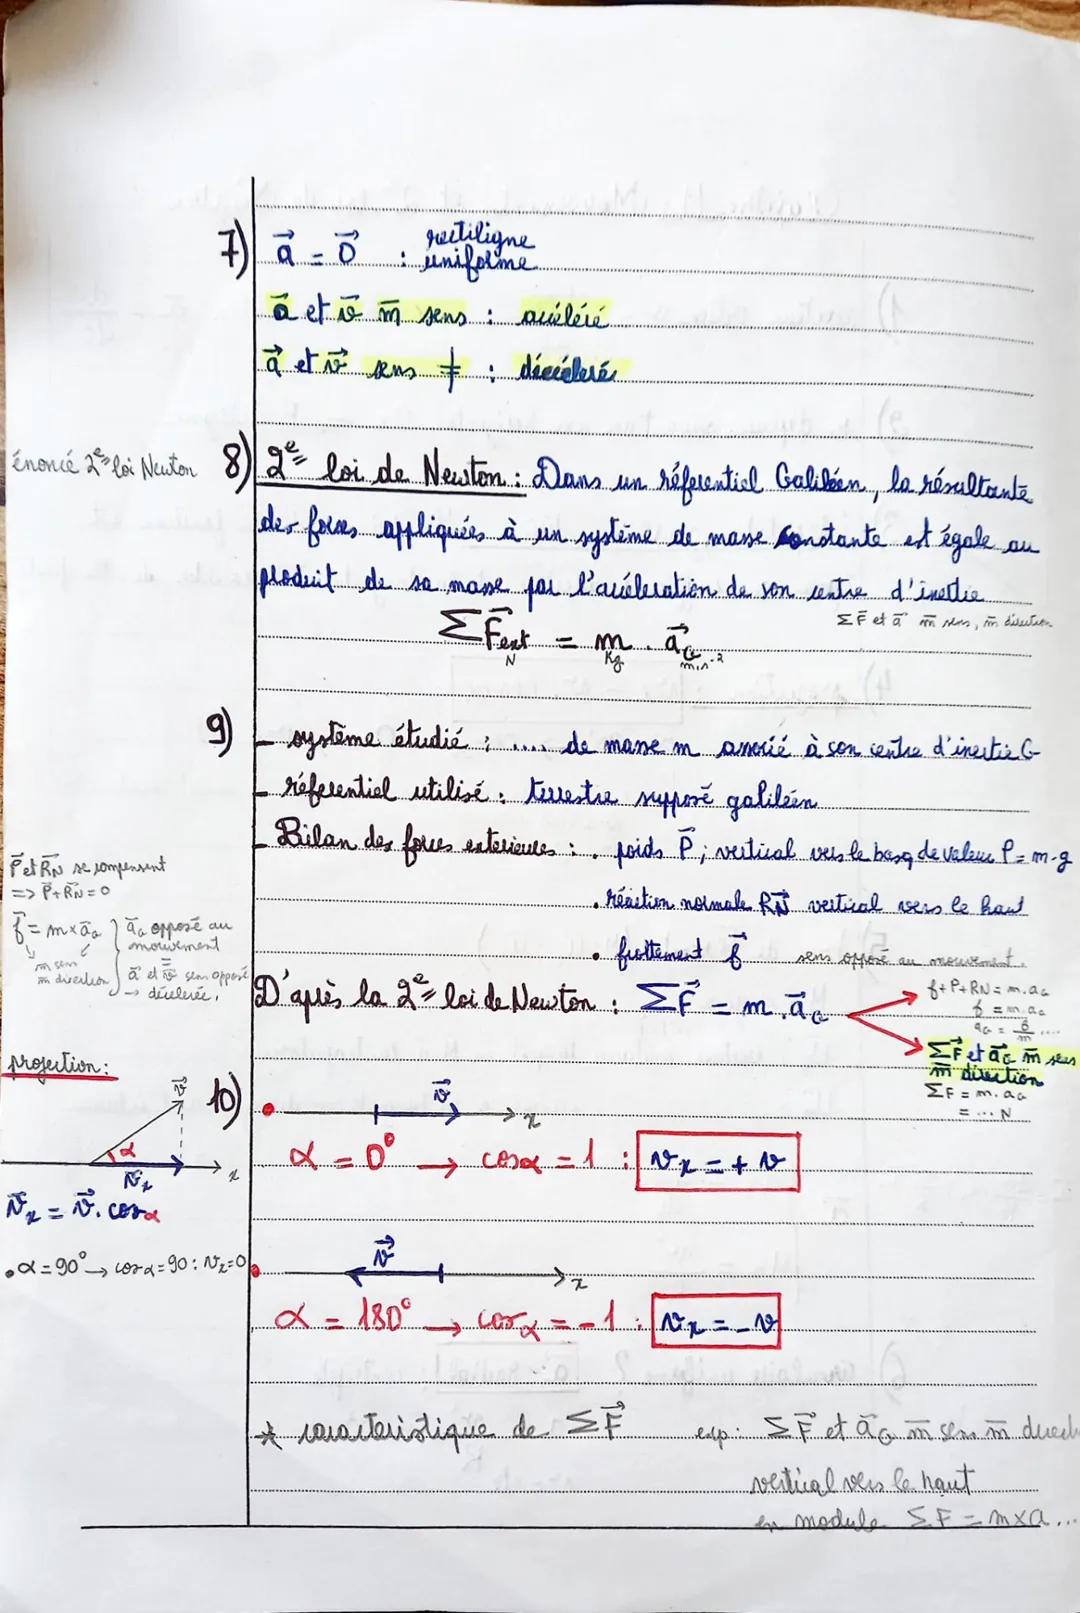 7) a⃗ = 0⃗ : rectiligne
uniforme
a⃗ et v⃗ m̄ sens : accéléré
a⃗ et v⃗ sens ≠ : décéleré
énoncé 2e loi Newton
8) 2e loi de Newton : Dans un réferentiel Galiléen, la résultante
des forces appliquées à un système de masse constante est égale au
produit de sa masse par l'accéleration de son centre d'inertie
ΣF⃗ et a⃗ m̄ sens, m̄ direction
ΣF⃗ext = m . a⃗G
N Kg m.s-2
9) - système étudié : .... de masse m associé à son centre d'inertie G
- réferentiel utilisé : terrestre supposé galiléen
- Bilan des forces exterieures : . poids P⃗ ; vertical vers le bas, de valeur P = m.g
. réaction normale RN⃗ vertical vers le haut
. frottement f⃗ sens opposé au mouvement.
P⃗ et R⃗N se compensent
=> P⃗+R⃗N = 0
f⃗ = m×a⃗G
m̄ sens
m̄ direction
a⃗G opposé au
mouvement
a⃗ et v⃗ sens opposé
→ décéleré.
D'après la 2e loi de Newton : ΣF⃗ = m.a⃗G
f+P+RN = m.aG
f = m.aG
aG = f/m ....
ΣF⃗ et a⃗G m̄ sens
m̄ direction
ΣF = m.aG
= ... N
projection :
v⃗
α
vx
x
v⃗x = v⃗. cosα
. α = 90° → cosα = 90 : vx = 0
10) v⃗
x
α = 0° → cosα = 1 : vx = + v
v⃗
x
α = 180° → cosα = - 1 : vx = - v
* caracteristique de ΣF⃗
exp : ΣF⃗ et a⃗G m̄ sens m̄ direct
vertical vers le haut
en module ΣF = m×a...